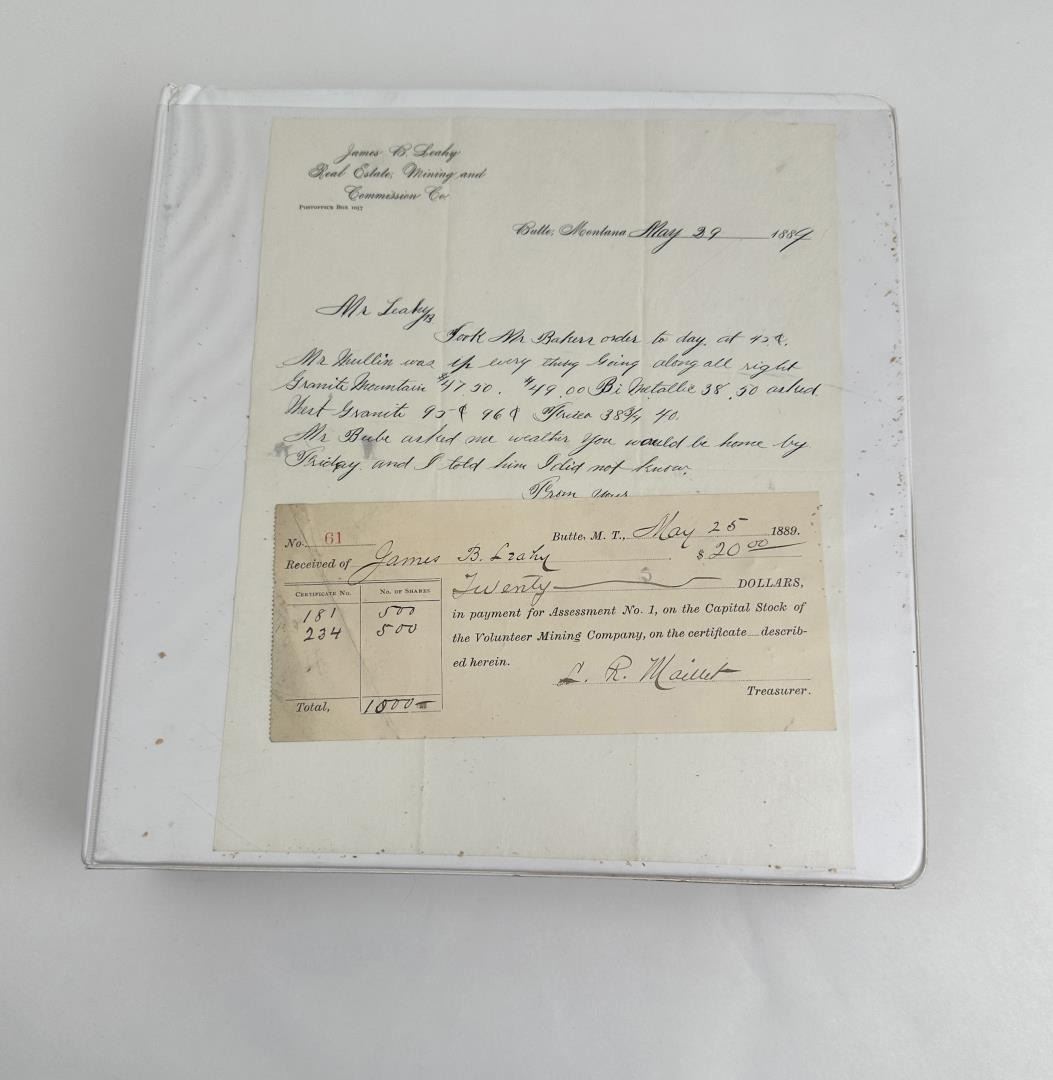 James B. Leahy
Real Estate, Mining and
Commission Co.
POSTOFFICE BOX 1057
Butte, Montana May 29 1889
Mr Leahy
Took Mr Bakers order to day. at 42¢.
Mr Mullin was up every thing Going along all right
Granit Mountain $47.50. $49.00 Bi Metallic 38.50 asked.
West Granite 95¢ 96¢ 38¾ 40.
Mr Bube asked me weather you would be home by
Friday. and I told him I did not know.
From yours
No. 61
Butte, M. T., May 25 1889.
Received of James B. Leahy $20 00
CERTIFICATE NO. NO. OF SHARES
Twenty DOLLARS,
181 500
in payment for Assessment No. 1, on the Capital Stock of
234 500
the Volunteer Mining Company, on the certificate describ-
ed herein.
L. R. Maillet
Treasurer.
Total, 1000